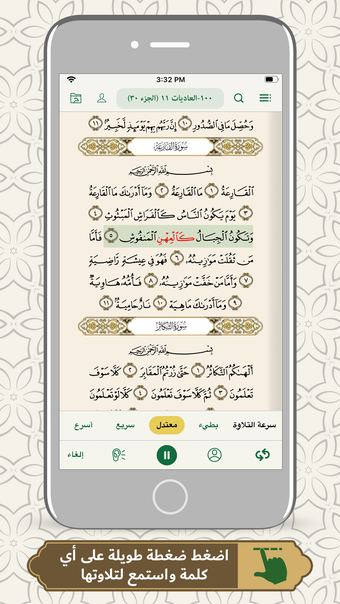 3:32 PM
١٠٠-العاديات ١١ (الجزء ٣٠)
وَحُصِّلَ مَا فِي ٱلصُّدُورِ ١٠ إِنَّ رَبَّهُم بِهِمۡ يَوۡمَئِذٖ لَّخَبِيرُۢ ١١
سُورَةُ القَارِعَةِ
بِسۡمِ ٱللَّهِ ٱلرَّحۡمَٰنِ ٱلرَّحِيمِ
ٱلۡقَارِعَةُ ١ مَا ٱلۡقَارِعَةُ ٢ وَمَآ أَدۡرَىٰكَ مَا ٱلۡقَارِعَةُ
٣ يَوۡمَ يَكُونُ ٱلنَّاسُ كَٱلۡفَرَاشِ ٱلۡمَبۡثُوثِ ٤
وَتَكُونُ ٱلۡجِبَالُ كَٱلۡعِهۡنِ ٱلۡمَنفُوشِ ٥ فَأَمَّا
مَن ثَقُلَتۡ مَوَٰزِينُهُۥ ٦ فَهُوَ فِي عِيشَةٖ رَّاضِيَةٖ
٧ وَأَمَّا مَنۡ خَفَّتۡ مَوَٰزِينُهُۥ ٨ فَأُمُّهُۥ هَاوِيَةٞ
٩ وَمَآ أَدۡرَىٰكَ مَا هِيَهۡ ١٠ نَارٌ حَامِيَةُۢ ١١
سُورَةُ التَّكَاثُرِ
بِسۡمِ ٱللَّهِ ٱلرَّحۡمَٰنِ ٱلرَّحِيمِ
أَلۡهَىٰكُمُ ٱلتَّكَاثُرُ ١ حَتَّىٰ زُرۡتُمُ ٱلۡمَقَابِرَ ٢ كَلَّا سَوۡفَ
تَعۡلَمُونَ ٣ ثُمَّ كَلَّا سَوۡفَ تَعۡلَمُونَ ٤ كَلَّا لَوۡ تَعۡلَمُونَ
سرعة التلاوة بطيء معتدل سريع أسرع
إلغاء
اضغط ضغطة طويلة على أي
كلمة واستمع لتلاوتها